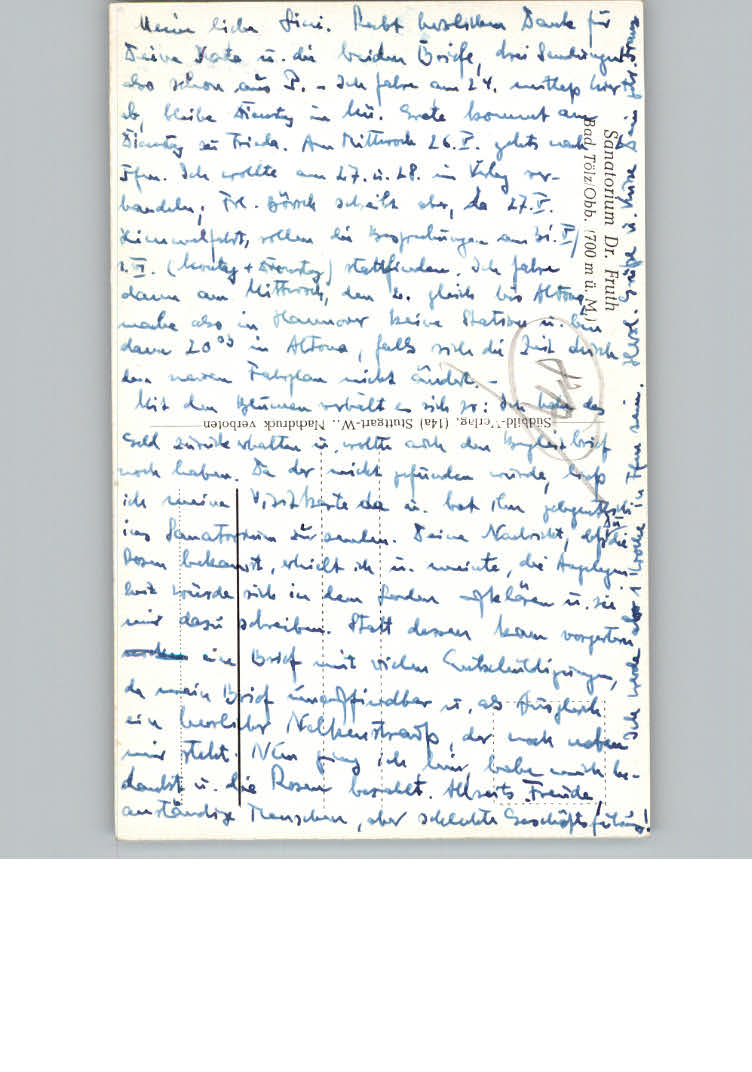 Meine liebe Sini. Recht herzlichen Dank für
Deine Karte u. die beiden Briefe, drei Sendungen
also schon aus P. – Ich fahre am 24. mittag hier
ab, bleibe Dienstag in Mü. Grete kommt am
Dienstag zu Frieda. Am Mittwoch 26.V. gehts nach
Ffm. Ich wollte am 27. u. 28. im Verlag ver-
handeln; Frl. schreibt aber, da 27.V.
Himmelfahrt, sollen die Besprechungen am 31.V/
1.VI. (Montag + Dienstag) stattfinden. Ich fahre
dann am Mittwoch, den 2. gleich bis Altona,
mache also in Hannover keine Station u. bin
dann 20⁰³ in Altona, falls sich die Zeit durch
den neuen Fahrplan nicht ändert. –
Mit den Blumen verhält es sich so: Ich habe das
Geld zurück erhalten u. wollte auch den Begleitbrief
noch haben. Da der nicht gefunden wurde, liess
ich meine Visitkarte da u. bat ihn gelegentlich
ins Sanatorium zu senden. Deine Nachricht, dass die
Rosen bekamst, erhielt ich u. meinte, die Angelegen-
heit würde sich in dem Laden aufklären u. sie
mir dazu schreiben. Statt dessen kam vorgestern
ein Brief mit vielen Entschuldigungen,
da mein Brief unauffindbar u. als Ausgleich
ein herrlicher Nelkenstrauß, der noch neben
mir steht. Nun ging ich hin, habe mich be-
dankt u. die Rosen bezahlt. Allseits Freude,
anständige Menschen, aber schlechte Geschäftsführung!
Ich werde aber 1 Woche in Ffm sein. Herzl. Grüße u. Küsse Dein Franz
Sanatorium Dr. Fruth
Bad Tölz/Obb. (700 m ü. M.)
Südbild-Verlag, (14a) Stuttgart-W., Nachdruck verboten